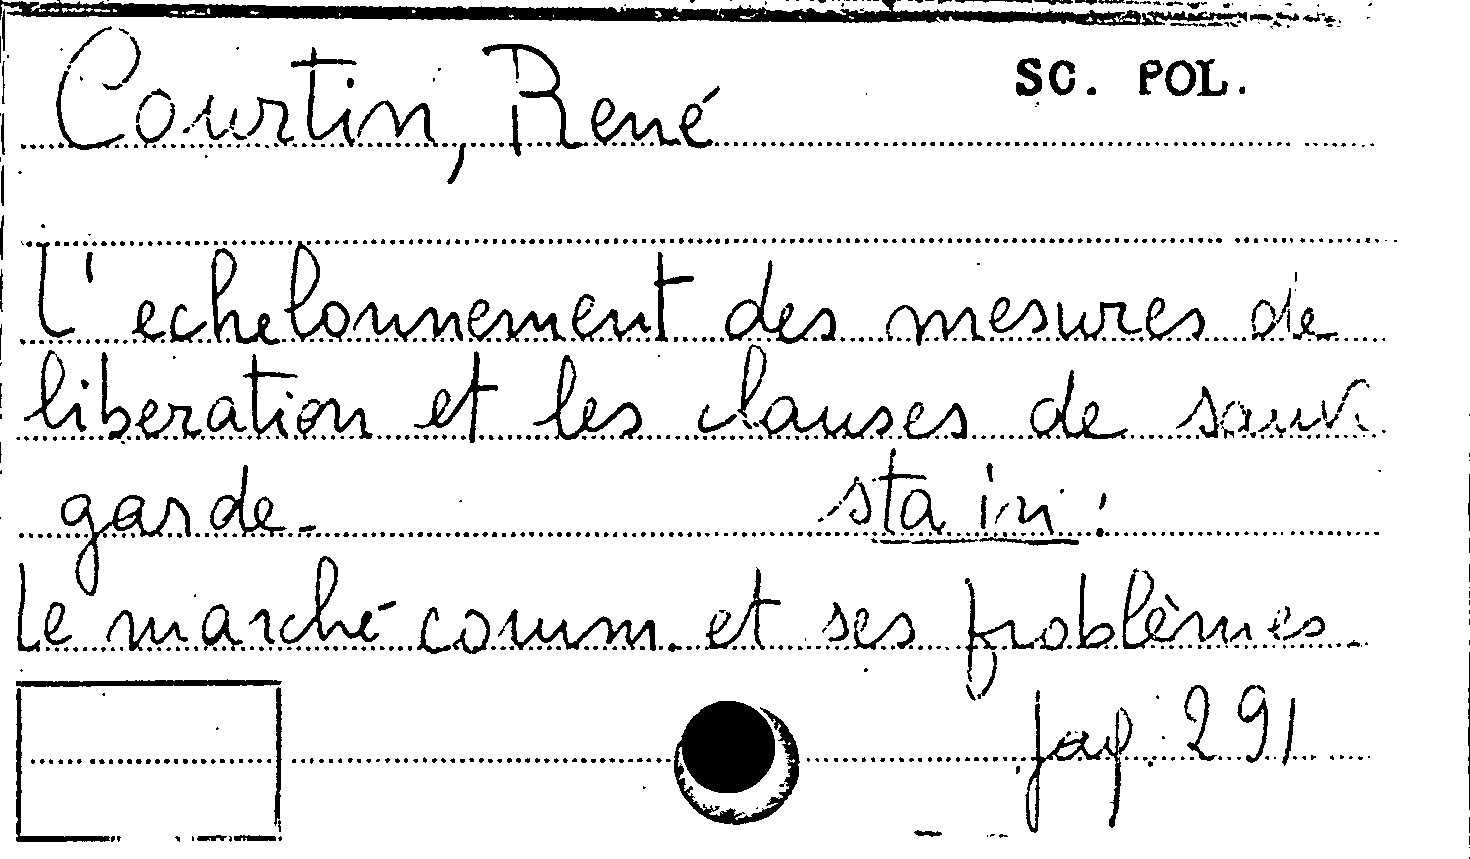 Courtin, René
SC. POL.
L'echelonnement des mesures de
liberation et les clauses de sauv
garde.
sta in:
Le marché comm. et ses problèmes.
pag. 291